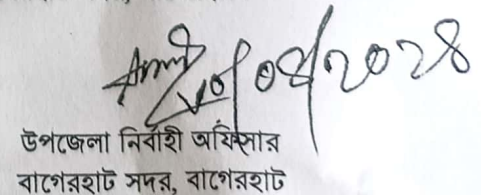 ৩০/০৪/২০২৪
উপজেলা নির্বাহী অফিসার
বাগেরহাট সদর, বাগেরহাট